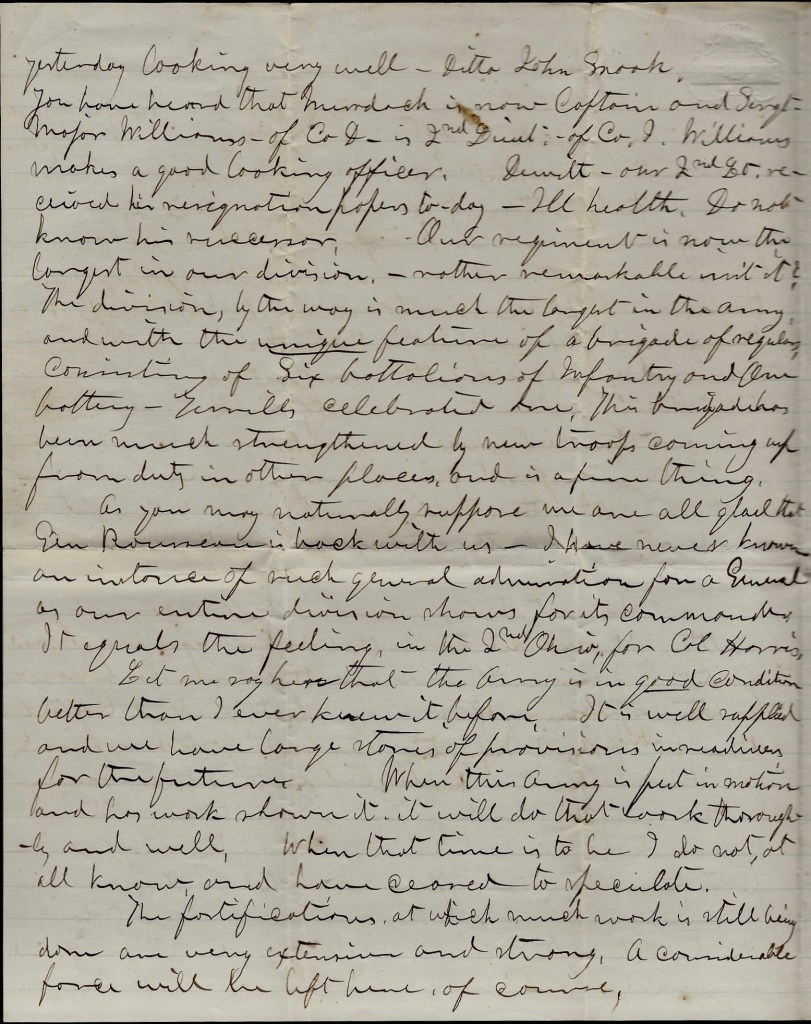 yesterday looking very well – Ditto John Snook.
You have heard that Murdock is now Captain and Sergt-
Major Williams – of Co D – is 2nd Lieut. – of Co. I. Williams
makes a good looking officer. Dewitt – our 2nd Lt. re-
ceived his resignation papers to-day – Ill health. Do not
know his successor. Our regiment is now the
largest in our division, – rather remarkable isn't it?
The division, by the way is much the largest in the army,
and with the unique feature of a brigade of regulars,
consisting of Six battalions of Infantry and One
battery – Terrill's celebrated one. This brigade has
been much strengthened by new troops coming up
from duty in other places, and is a fine thing.
As you may naturally suppose we are all glad that
Gen Rousseau is back with us – I have never known
an instance of such general admiration for a General
as our entire division shows for its commander.
It equals the feeling, in the 2nd Ohio, for Col Harris.
Let me say here that the Army is in good condition
better than I ever knew it, before. It is well supplied
and we have large stores of provisions in readiness
for the future. When this Army is put in motion
and has work shown it. it will do that work thorough-
-ly and well. When that time is to be I do not, at
all know, and have ceased to speculate.
The fortifications, at which much work is still being
done are very extensive and strong. A considerable
force will be left here, of course,